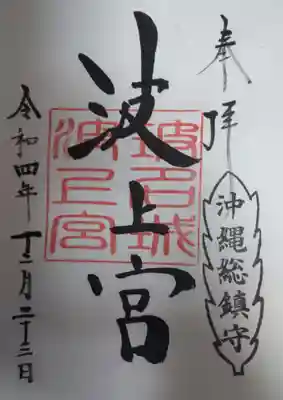 奉拝
沖縄総鎮守
波上宮
波上宮
令和四年十二月二十二日